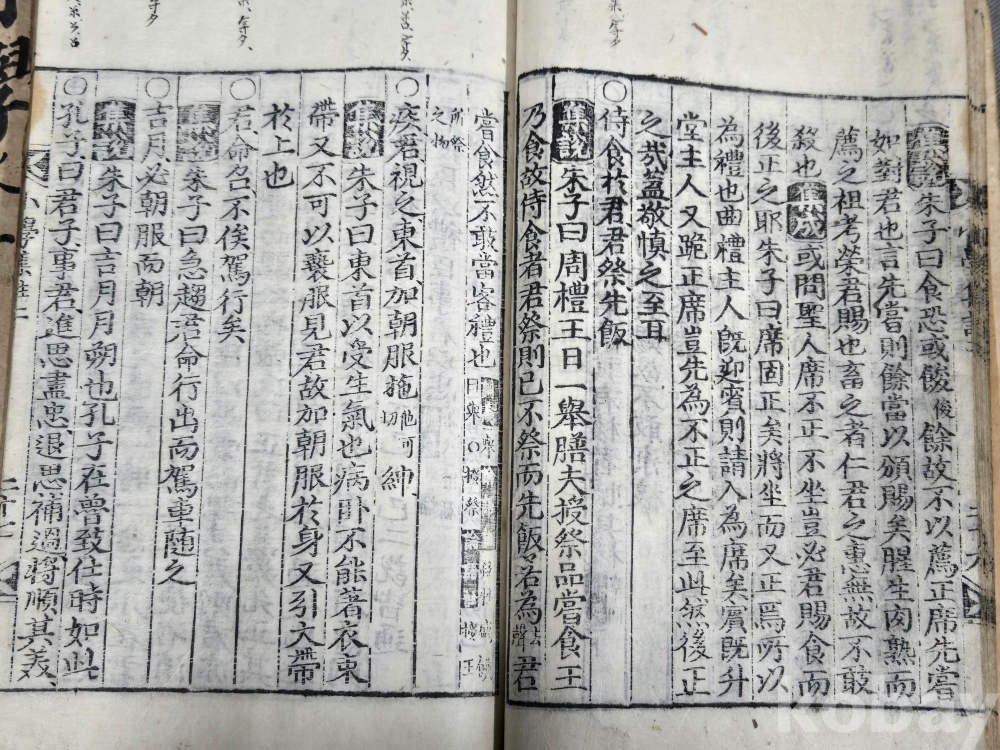 朱子曰食恐或餕俊餘故不以薦正席先嘗
如對君也言先嘗則餘當以頒賜矣腥生肉熟而
薦之祖考榮君賜也畜之者仁君之惠無故不敢
殺也 或問聖人席不正不坐豈必君賜食而
後正之耶朱子曰席固正矣將坐而又正焉所以
為禮也曲禮主人旣迎賓則請入為席矣賓旣升
堂主人又跪正席豈先為不正之席至此然後正
之哉蓋敬慎之至耳
○侍食於君君祭先飯
集說 朱子曰周禮王日一舉膳夫授祭品嘗食王
乃食故侍食者君祭則已不祭而先飯若為去聲君
嘗食然不敢當客禮也
所祭之物
○疾君視之東首加朝服拖他可切紳
集說 朱子曰東首以受生氣也病卧不能著衣束
帶又不可以褻服見君故加朝服於身又引大帶
於上也
○君命召不俟駕行矣
集說 朱子曰急趨君命行出而駕車隨之
○吉月必朝服而朝
集說 朱子曰吉月月朔也孔子在魯致仕時如此
○孔子曰君子事君進思盡忠退思補過將順其美
kobay